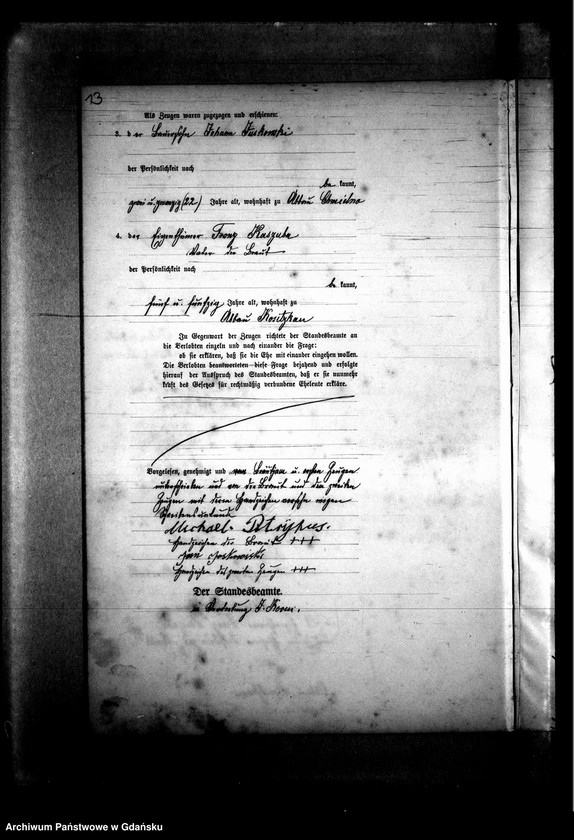 13
Als Zeugen waren zugezogen und erschienen:
3. der Bauersohn Johann Juskowski
der Persönlichkeit nach
be kannt,
zwei u. zwanzig (22) Jahre alt, wohnhaft zu Abbau Chmielno
4. der Eigenthümer Franz Kaszuba
Vater der Braut
der Persönlichkeit nach
be kannt,
fünf u. fünfzig Jahre alt, wohnhaft zu
Abbau
In Gegenwart der Zeugen richtete der Standesbeamte an
die Verlobten einzeln und nach einander die Frage:
ob sie erklären, daß sie die Ehe mit einander eingehen wollen.
Die Verlobten beantworteten diese Frage bejahend und erfolgte
hierauf der Ausspruch des Standesbeamten, daß er sie nunmehr
kraft des Gesetzes für rechtmäßig verbundene Eheleute erkläre.
Vorgelesen, genehmigt und von Bräutigam u. ersten Zeugen
unterschrieben und von der Braut und dem zweiten
Zeugen mit deren Handzeichen versehen wegen
Schreibensunkunde
Michael
Handzeichen der Braut +++
Handzeichen des zweiten Zeugen +++
Der Standesbeamte.
in Vertretung
Archiwum Państwowe w Gdańsku